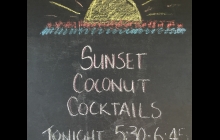 SUNSET
COCONUT
COCKTAILS
TONIGHT 5:30-6:45